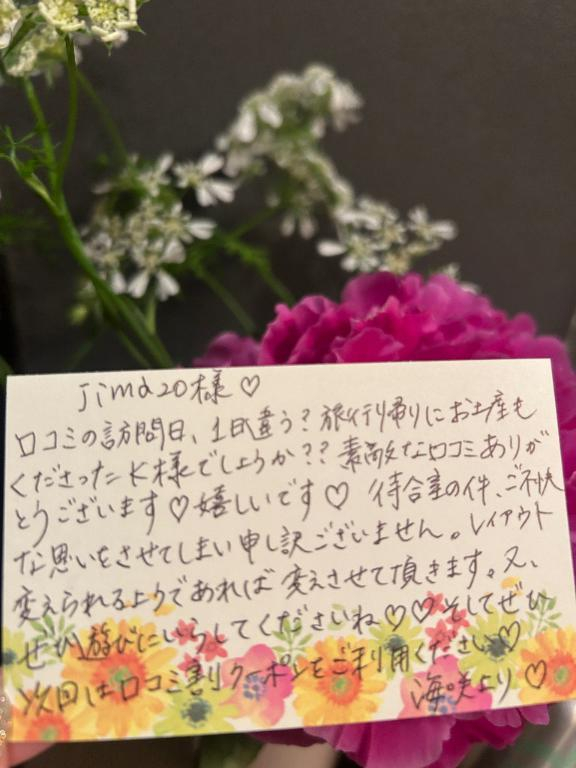 jima20様♡
口コミの訪問日、1日違う?旅行帰りにお土産も
くださったK様でしょうか??素敵な口コミありが
とうございます♡嬉しいです♡ 待合室の件、ご不快
な思いをさせてしまい申し訳ございません。レイアウト
変えられるようであれば変えさせて頂きます。又、
ぜひ遊びにいらしてくださいね♡♡そしてぜひ
次回は口コミ割クーポンをご利用ください♡
海咲より♡